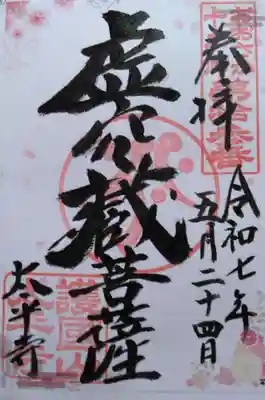 奉拝
令和七年
五月二十四日
虚空蔵菩薩
太平寺
護国山